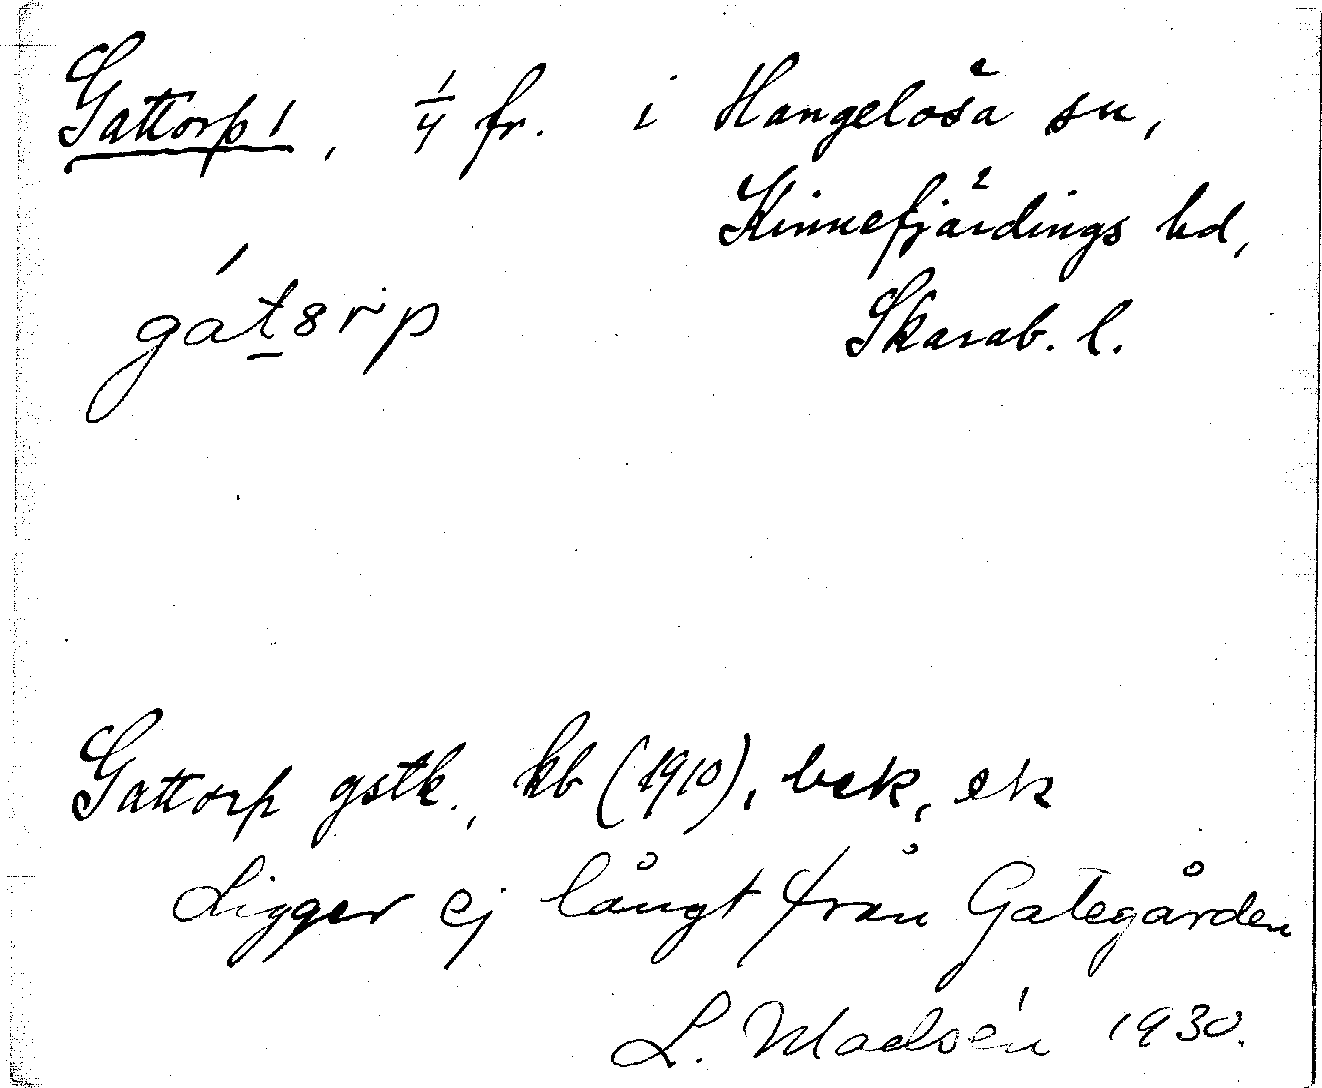 Gattorp 1, 1/4 fr. i Hangelösa sn,
Kinnefjärdings hd,
Skarab. l.
gátsrp
Gattorp gstk., kb (1910), bek, ek
Ligger ej långt från Gategården
L. Madsén 1930.